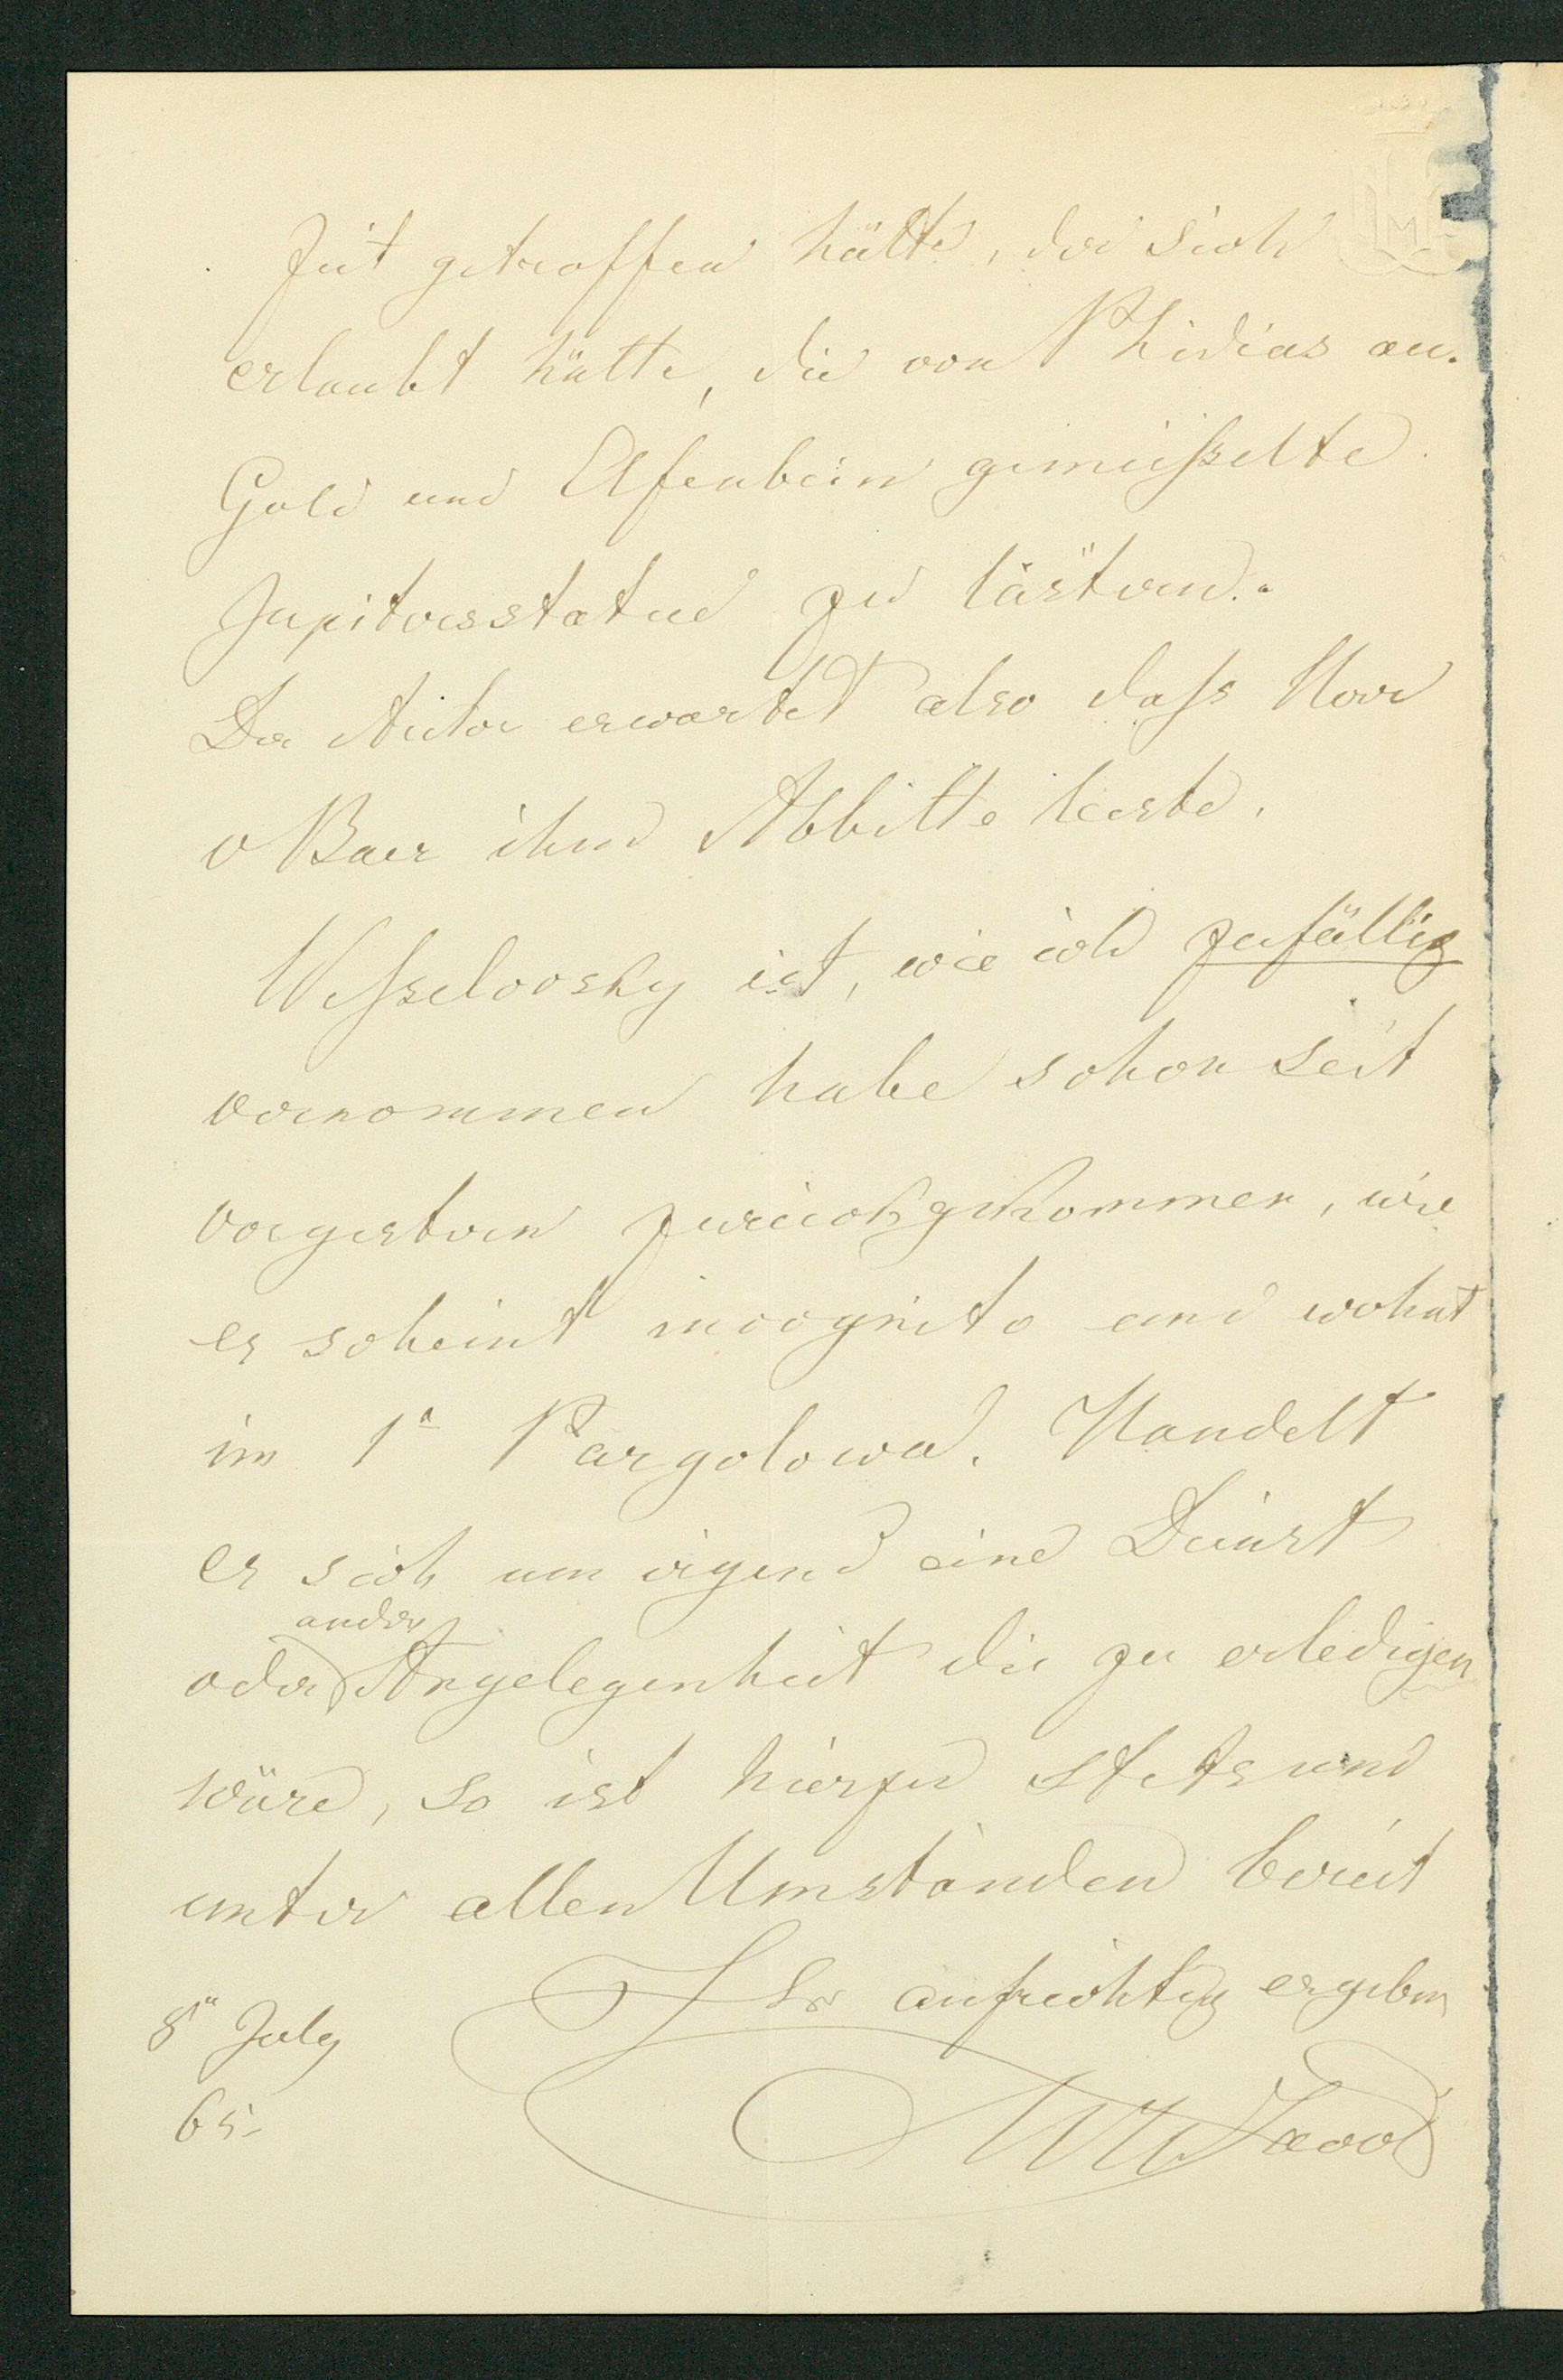 Zeit getroffen hätte, der sich
erlaubt hätte, die von Phidias au.
Gold und Elfenbein gemeißelte
Jupitersstatue zu lästern.
Der Autor erwartet also dass Herr
v Baer ihm Abbitte leiste.
Wesselovsky ist, wie ich zufällig
vernommen habe schon seit
vorgestern zurückgekommen, wie
es scheint incognito und wohnt
im 1n Pargolowa. Handelt
es sich um irgend eine Dienst
andere
oder Angelegenheit die zu erledigen
wäre, so ist hierzu stets und
unter allen Umständen bereit
Ihr aufrichtig ergeben
8n July
65.